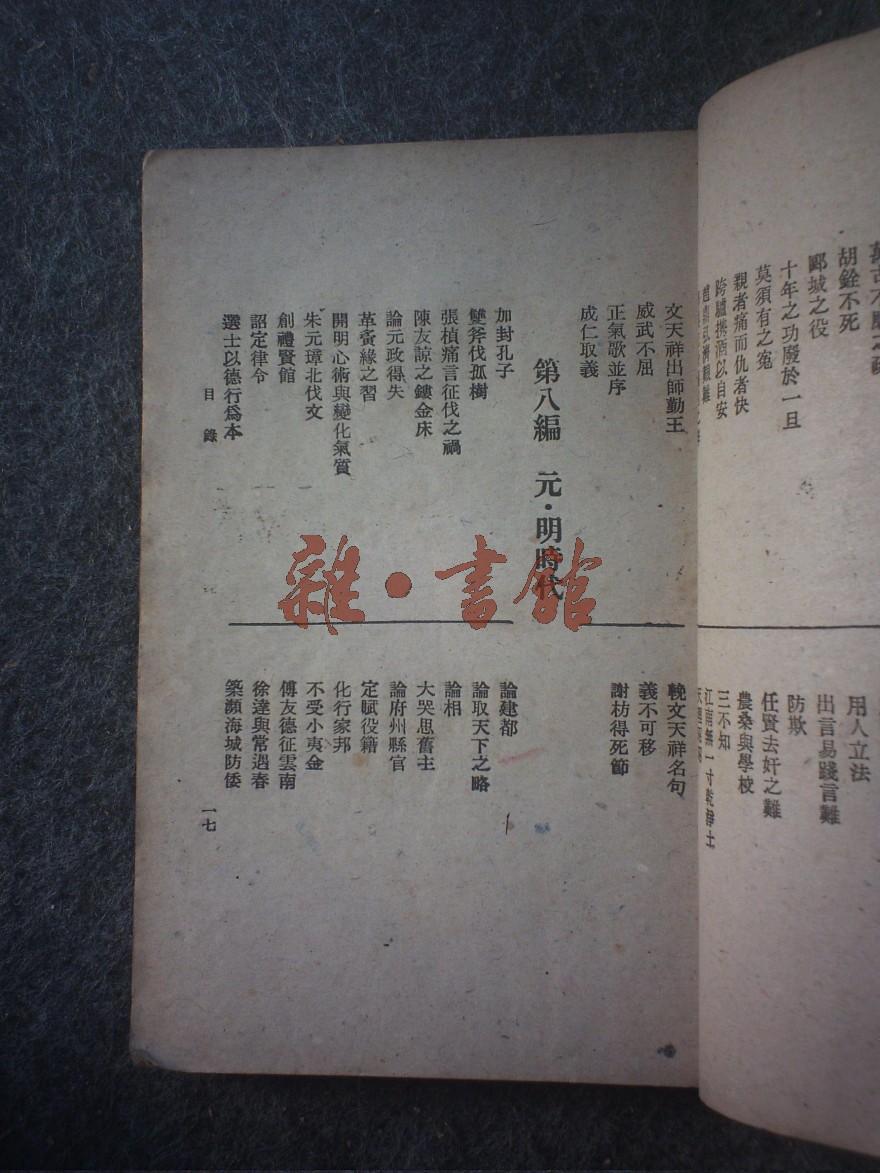 胡銓不死
郾城之役
十年之功廢於一旦
莫須有之寃
親者痛而仇者快
跨驢携酒以自安
用人立法
出言易踐言難
防欺
任賢去奸之難
農桑與學校
三不知
江南無一寸乾淨土
文天祥出師勤王
威武不屈
正氣歌並序
成仁取義
輓文天祥名句
義不可移
謝枋得死節
第八編　元·明時代
加封孔子
雙斧伐孤樹
張楨痛言征伐之禍
陳友諒之鏤金床
論元政得失
革夤緣之習
開明心術與變化氣質
朱元璋北伐文
創禮賢館
詔定律令
選士以德行爲本
論建都
論取天下之略
論相
大哭思舊主
論府州縣官
定賦役籍
化行家邦
不受小夷金
傅友德征雲南
徐達與常遇春
築瀕海城防倭
目錄
一七
雜·書館